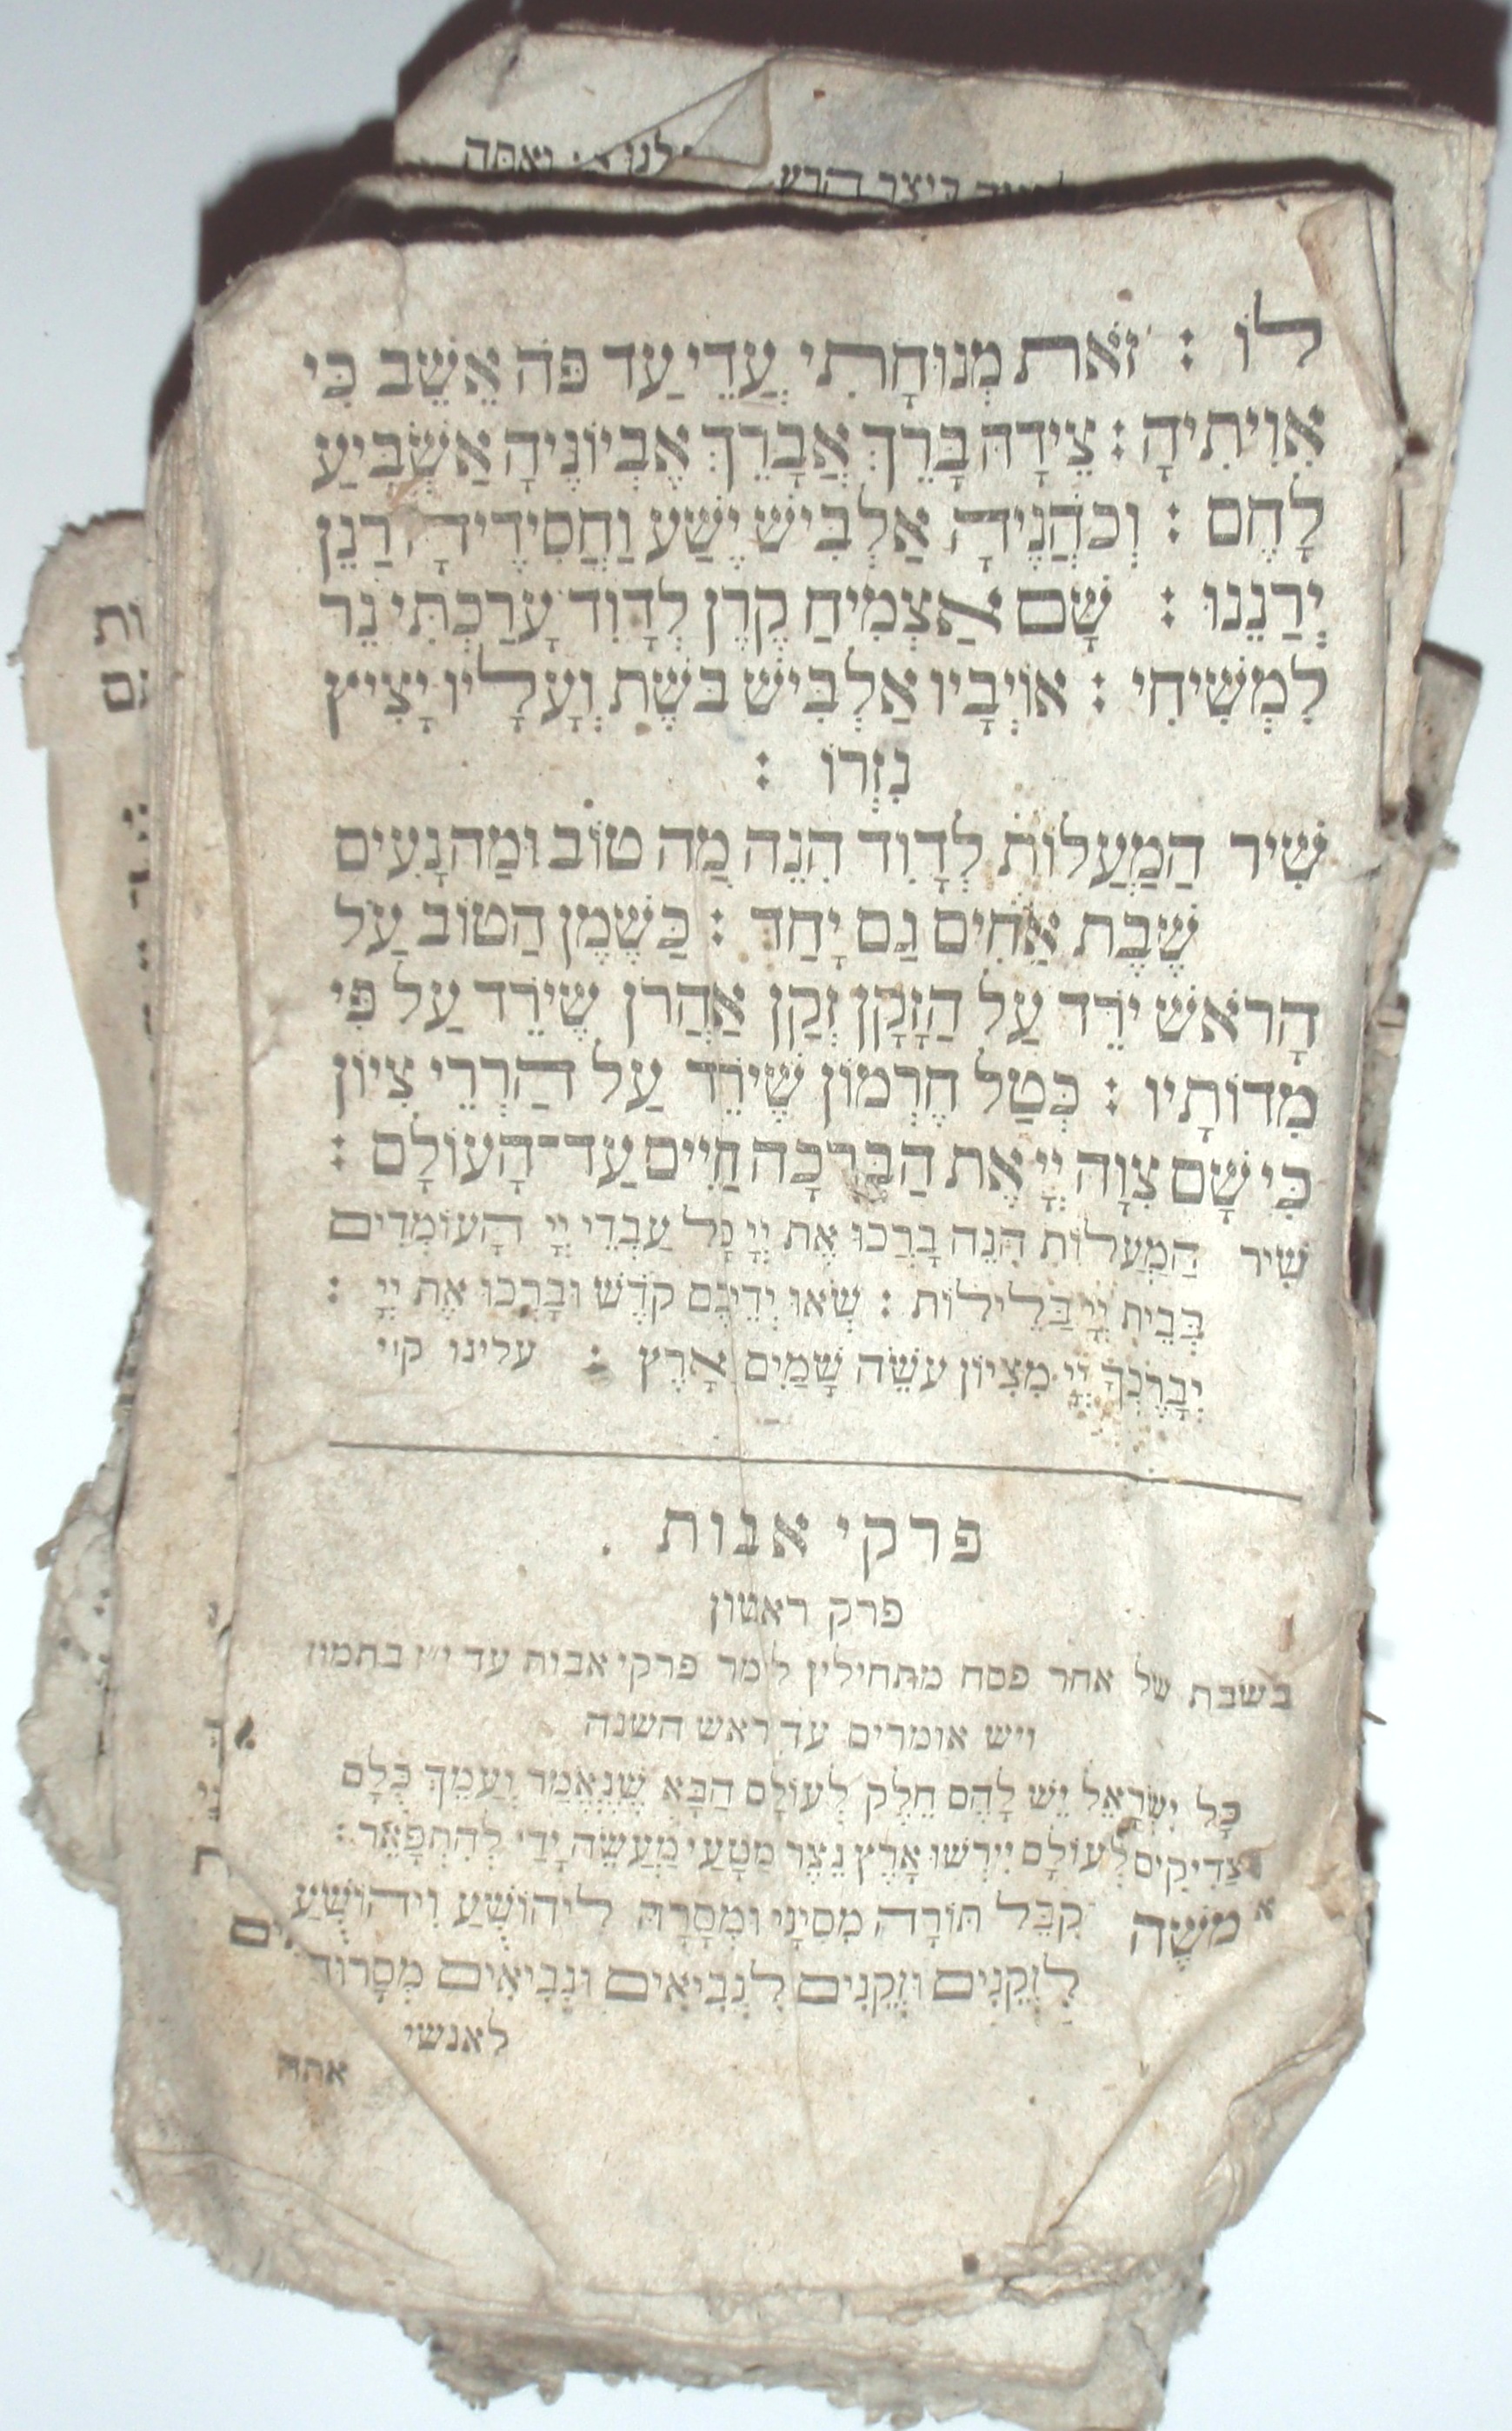 לנו ואתה
ביצר הרע
לוֹ : זֹאת מְנוּחָתִי עֲדֵי עַד פֹּה אֵשֵׁב כִּי
אִוִּיתִיהָ : צֵידָהּ בָּרֵךְ אֲבָרֵךְ אֶבְיוֹנֶיהָ אַשְׂבִּיעַ
לָחֶם : וְכֹהֲנֶיהָ אַלְבִּישׁ יֶשַׁע וַחֲסִידֶיהָ רַנֵּן
יְרַנֵּנוּ : שָׁם אַצְמִיחַ קֶרֶן לְדָוִד עָרַכְתִּי נֵר
לִמְשִׁיחִי : אוֹיְבָיו אַלְבִּישׁ בֹּשֶׁת וְעָלָיו יָצִיץ
נִזְרוֹ :
שִׁיר הַמַּעֲלוֹת לְדָוִד הִנֵּה מַה טּוֹב וּמַה נָּעִים
שֶׁבֶת אַחִים גַּם יָחַד : כַּשֶּׁמֶן הַטּוֹב עַל
הָרֹאשׁ יֹרֵד עַל הַזָּקָן זְקַן אַהֲרֹן שֶׁיֹּרֵד עַל פִּי
מִדּוֹתָיו : כְּטַל חֶרְמוֹן שֶׁיֹּרֵד עַל הַרְרֵי צִיּוֹן
כִּי שָׁם צִוָּה יְיָ אֶת הַבְּרָכָה חַיִּים עַד־הָעוֹלָם :
שִׁיר הַמַּעֲלוֹת הִנֵּה בָּרְכוּ אֶת יְיָ כָּל עַבְדֵי יְיָ הָעוֹמְדִים
בְּבֵית יְיָ בַּלֵּילוֹת : שְׂאוּ יְדֵיכֶם קֹדֶשׁ וּבָרְכוּ אֶת יְיָ :
יְבָרֶכְךָ יְיָ מִצִּיּוֹן עֹשֵׂה שָׁמַיִם וָאָרֶץ : עלינו ק״י
פרקי אבות .
פרק ראשון
בשבת של אחר פסח מתחילין לומר פרקי אבות עד י״ז בתמוז
ויש אומרים עד ראש השנה
כָּל יִשְׂרָאֵל יֵשׁ לָהֶם חֵלֶק לְעוֹלָם הַבָּא שֶׁנֶּאֱמַר וְעַמֵּךְ כֻּלָּם
צַדִּיקִים לְעוֹלָם יִירְשׁוּ אָרֶץ נֵצֶר מַטָּעַי מַעֲשֵׂה יָדַי לְהִתְפָּאֵר :
א מֹשֶׁה קִבֵּל תּוֹרָה מִסִּינַי וּמְסָרָהּ לִיהוֹשֻׁעַ וִיהוֹשֻׁעַ
לִזְקֵנִים וּזְקֵנִים לִנְבִיאִים וּנְבִיאִים מְסָרוּהָ
לאנשי
אתה